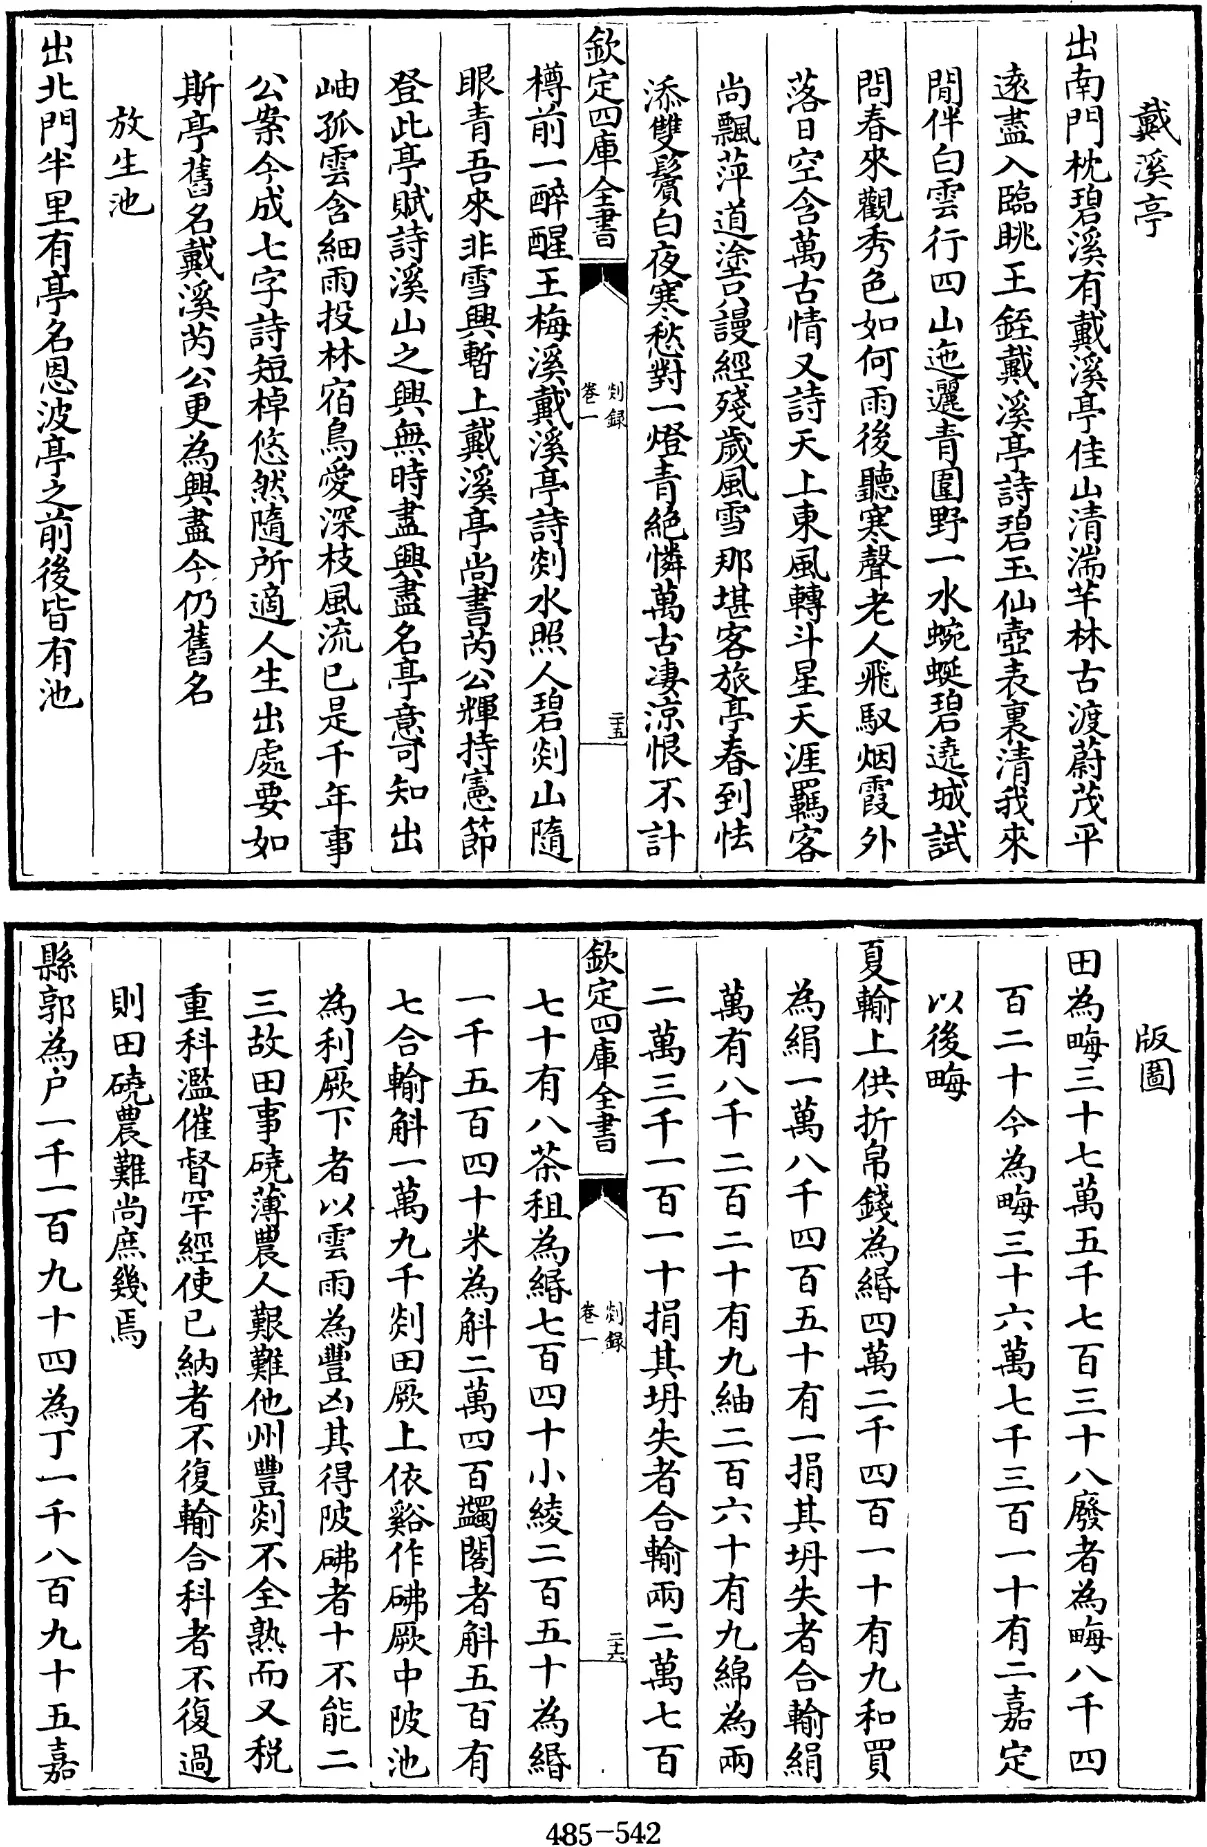 戴溪亭
出南門枕碧溪有戴溪亭佳山清湍芊林古渡蔚茂平
遠盡入臨眺王銍戴溪亭詩碧玉仙壺表裏清我來
閒伴白雲行四山迤邐青圍野一水蜿蜒碧遶城試
問春來觀秀色如何雨後聽寒聲老人飛馭烟霞外
落日空含萬古情又詩天上東風轉斗星天涯羈客
尚飄萍道塗只謾經殘歲風雪那堪客旅亭春到怯
添雙鬢白夜寒愁對一燈青絶憐萬古凄涼恨不計
欽定四庫全書
剡錄
卷一
二十五
樽前一醉醒王梅溪戴溪亭詩剡水照人碧剡山隨
眼青吾來非雪興暫上戴溪亭尚書芮公輝持憲節
登此亭賦詩溪山之興無時盡興盡名亭意可知出
岫孤雲含細雨投林宿鳥愛深枝風流已是千年事
公案今成七字詩短棹悠然隨所適人生出處要如
斯亭舊名戴溪芮公更為興盡今仍舊名
放生池
出北門半里有亭名恩波亭之前後皆有池
版圖
田為畮三十七萬五千七百三十八廢者為畮八千四
百二十今為畮三十六萬七千三百一十有二嘉定
以後畮
夏輸上供折帛錢為緡四萬二千四百一十有九和買
為絹一萬八千四百五十有一捐其坍失者合輸絹
萬有八千二百二十有九紬二百六十有九綿為兩
二萬三千一百一十捐其坍失者合輸兩二萬七百
欽定四庫全書
剡錄
卷一
二十六
七十有八茶租為緡七百四十小綾二百五十為緡
一千五百四十米為斛二萬四百蠲閣者斛五百有
七合輸斛一萬九千剡田厥上依谿作砩厥中陂池
為利厥下者以雲雨為豐凶其得陂砩者十不能二
三故田事磽薄農人艱難他州豐剡不全熟而又税
重科濫催督罕經使已納者不復輸合科者不復過
則田磽農難尚庶幾焉
縣郭為户一千一百九十四為丁一千八百九十五嘉
485-542